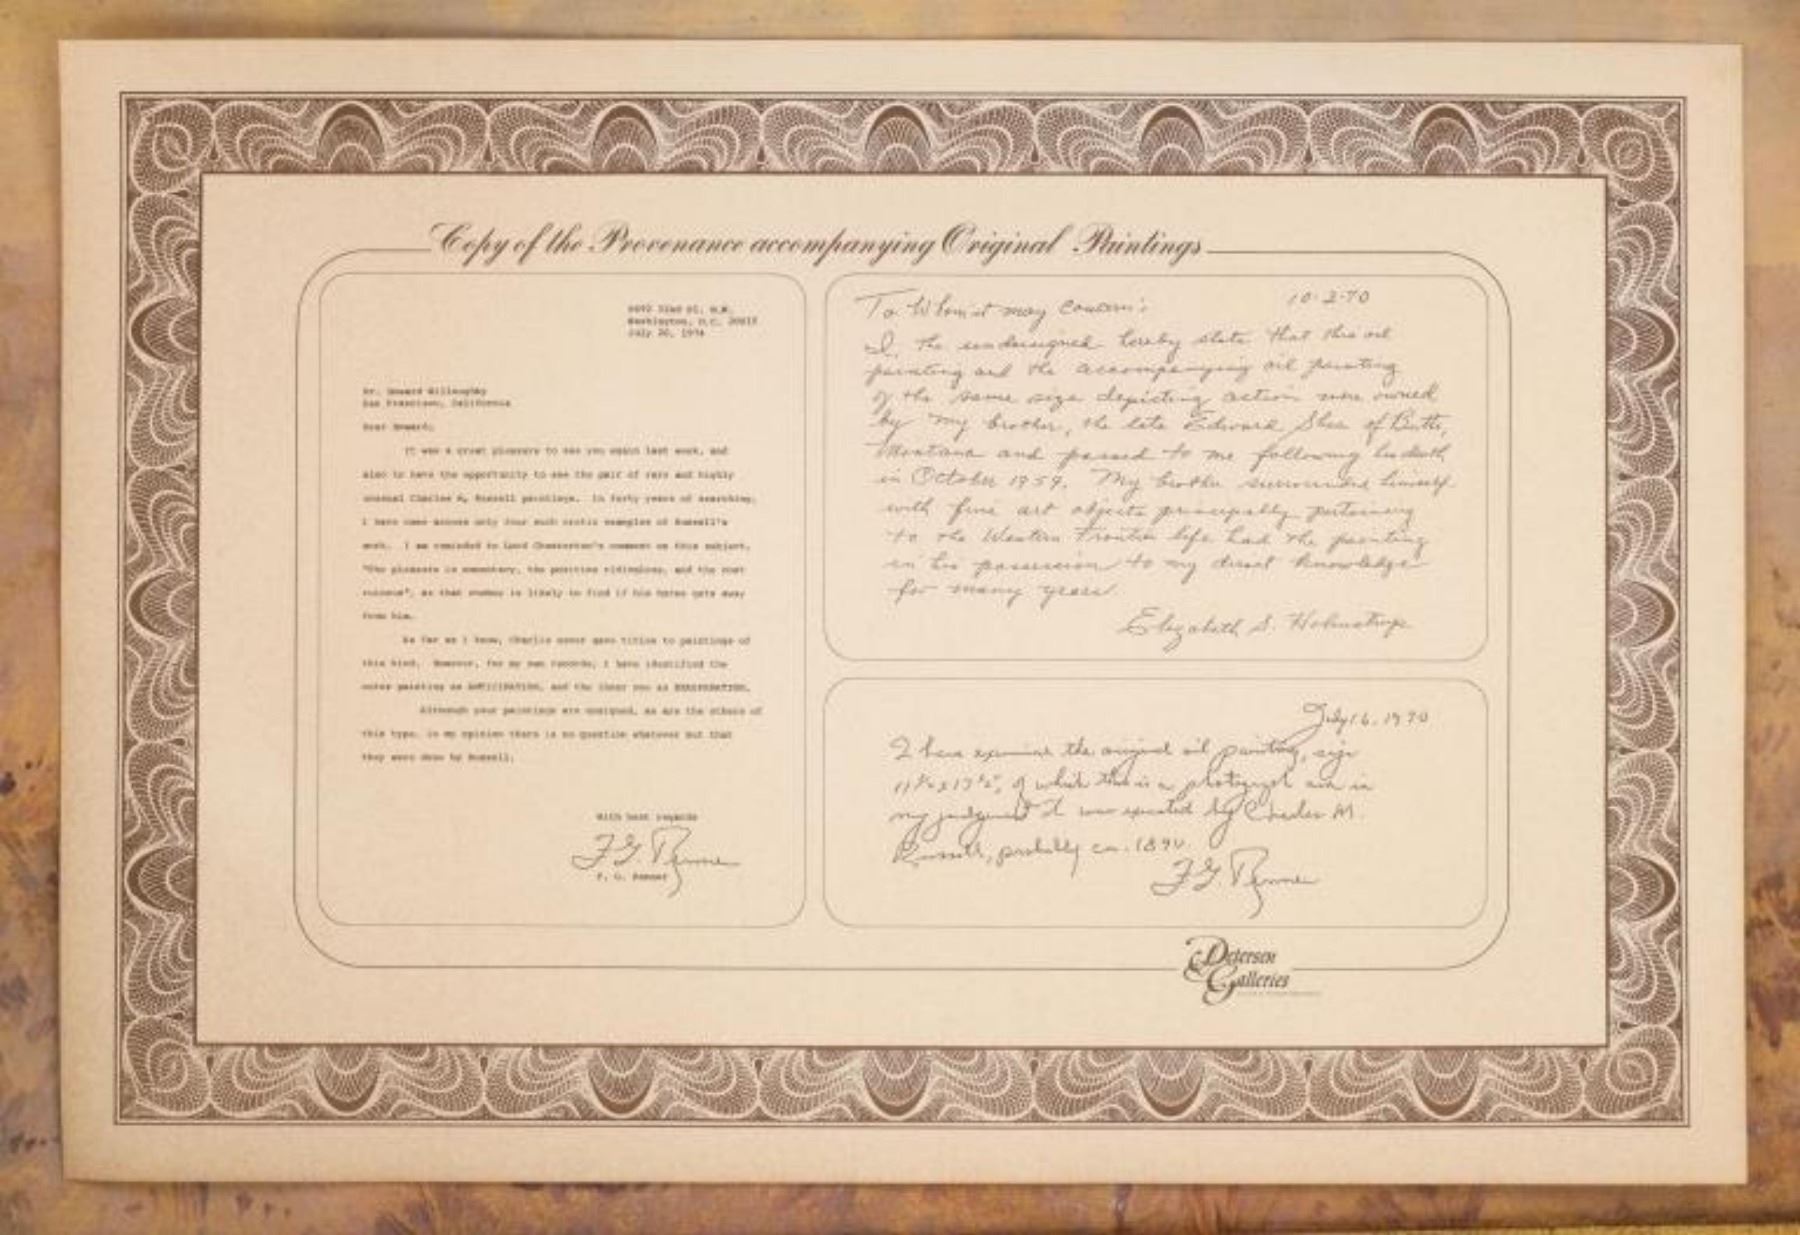 Copy of the Provenance accompanying Original Paintings
Washington, D.C. 20015
July 30, 1974
Dr. Howard Willoughby
San Francisco, California
Dear Howard;
It was a great pleasure to see you again last week, and
also to have the opportunity to see the pair of rare and highly
unusual Charles M. Russell paintings. In forty years of searching,
I have come across only four such erotic examples of Russell's
work. I am reminded of Lord Chesterton's comment on this subject,
"The pleasure is momentary, the position ridiculous, and the cost
ruinous", as that cowboy is likely to find if his horse gets away
from him.
As far as I know, Charlie never gave titles to paintings of
this kind. However, for my own records, I have identified the
outer painting as ANTICIPATION, and the inner one as EXASPERATION.
Although your paintings are unsigned, as are the others of
this type, in my opinion there is no question whatever but that
they were done by Russell.
With best regards
F. G. Renner
F. G. Renner
To Whom it may Concern: 10-2-70
I, the undersigned hereby state that this oil
painting and the accompanying oil painting
of the same size depicting action were owned
by my brother, the late Edward Shea of Butte,
Montana and passed to me following his death
in October 1959. My brother surrounded himself
with fine art objects principally pertaining
to the Western Frontier life had the painting
in his possession to my direct knowledge
for many years.
Elizabeth S.
July 16, 1970
I have examined the original oil painting, size
of which this is a photograph and in
my judgment it was executed by Charles M.
Russell, probably ca. 1890.
F. G. Renner
Petersen
Galleries